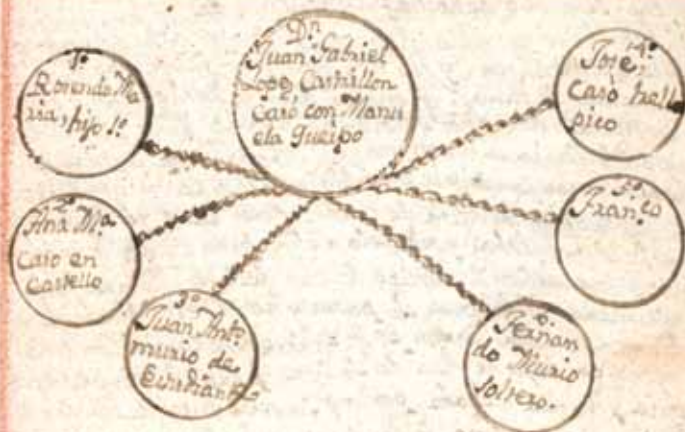 Dn
Juan Gabriel
Lopez Castrillon
Casó con Manu
ela Queipo
1º
Rosendo Ma
ria, hijo 1º
2ª
Ana Mª
Caso en
Castello
3º
Juan Antº
murio de
Estudiante
4º
Jose,
casò
pico
5º
Franco
6º
Fernan
do Murio
soltero.